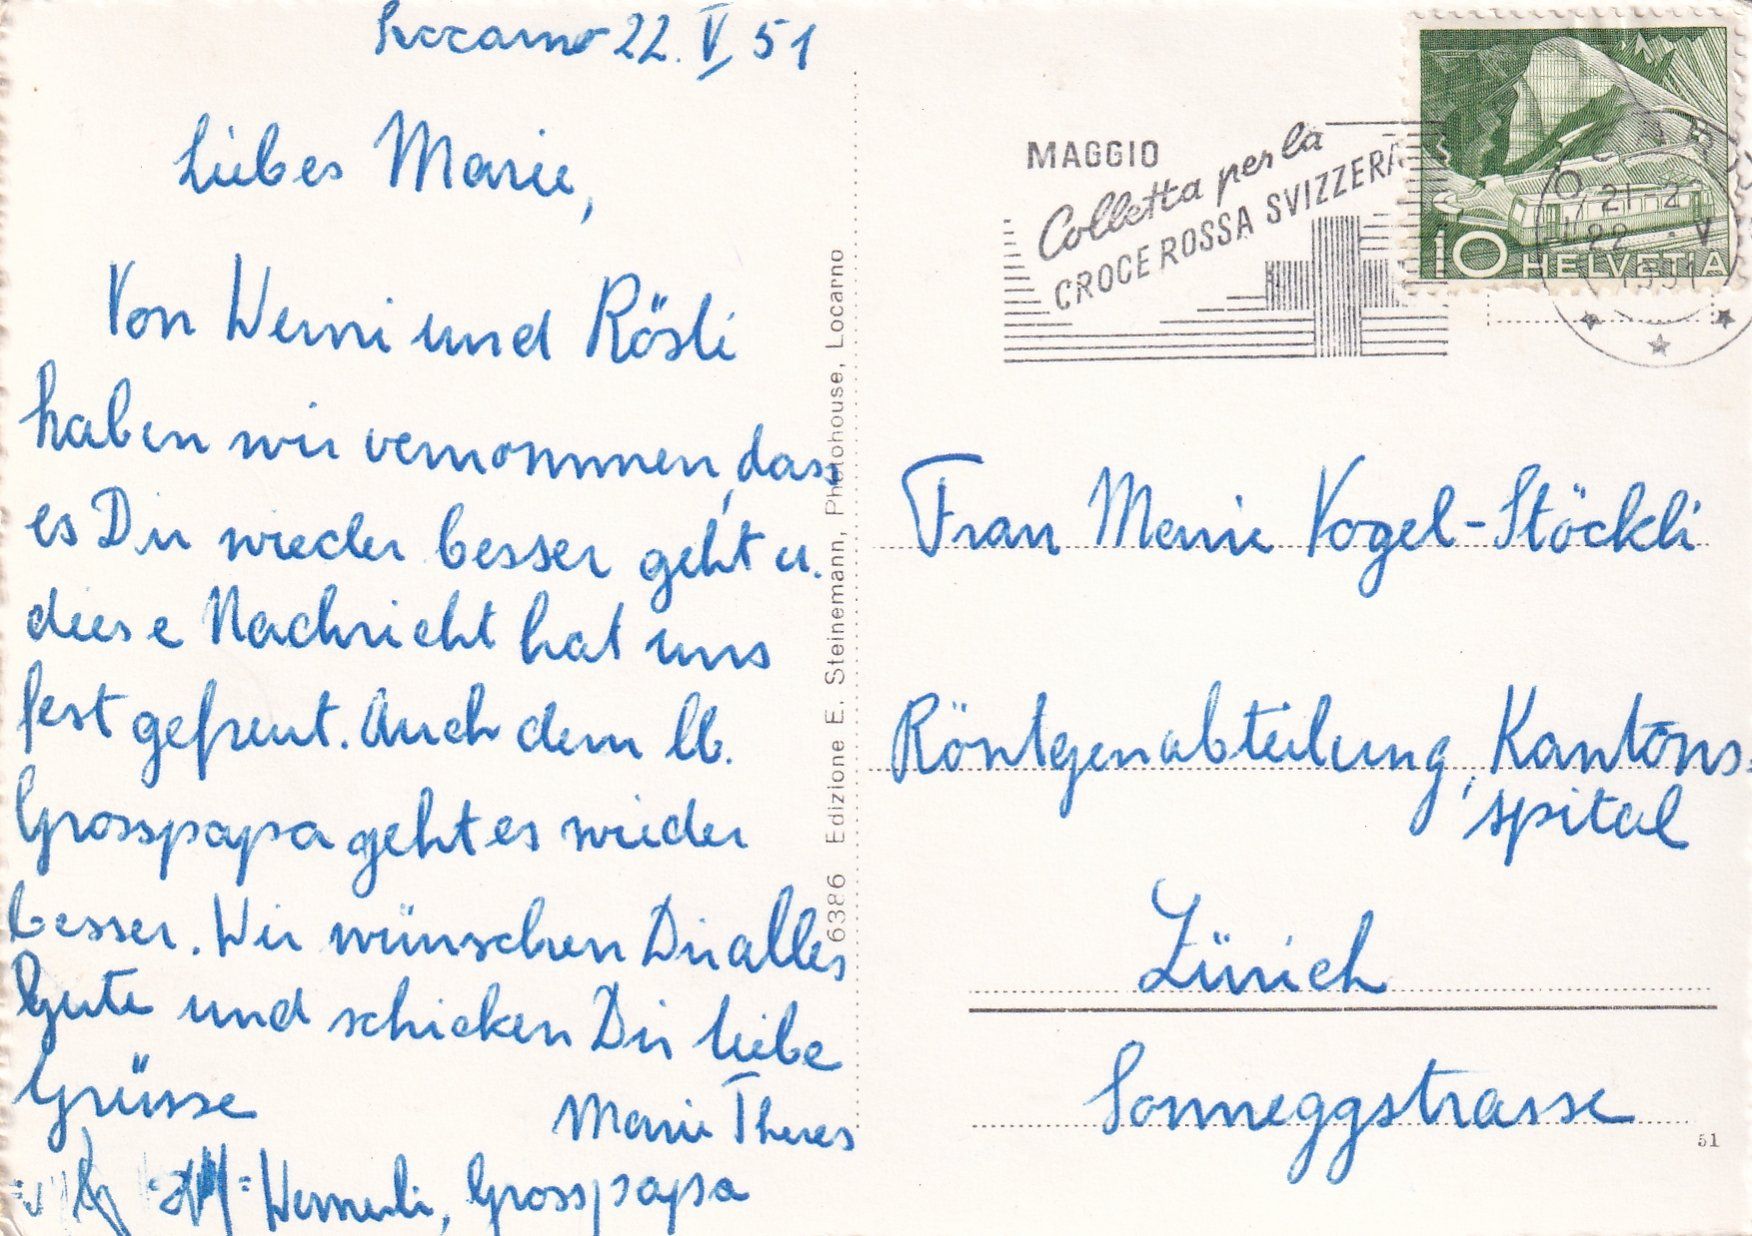 Locarno 22. V. 51
Liebes Marie,
Von Werni und Rösli
haben wir vernommen, dass
es Dir wieder besser geht u.
diese Nachricht hat uns
fest gefreut. Auch dem lb.
Grosspapa geht es wieder
besser. Wir wünschen Dir alles
Gute und schicken Dir liebe
Grüsse
Marie Theres
Wernerli, Grosspapa
6386 Edizione E. Steinemann, Photohouse, Locarno
MAGGIO
Colletta per la
CROCE ROSSA SVIZZERA
10 HELVETIA
22 . V
1951
Frau Marie Vogel-Stöckli
Röntgenabteilung, Kantons-
spital
Zürich
Sonneggstrasse
51